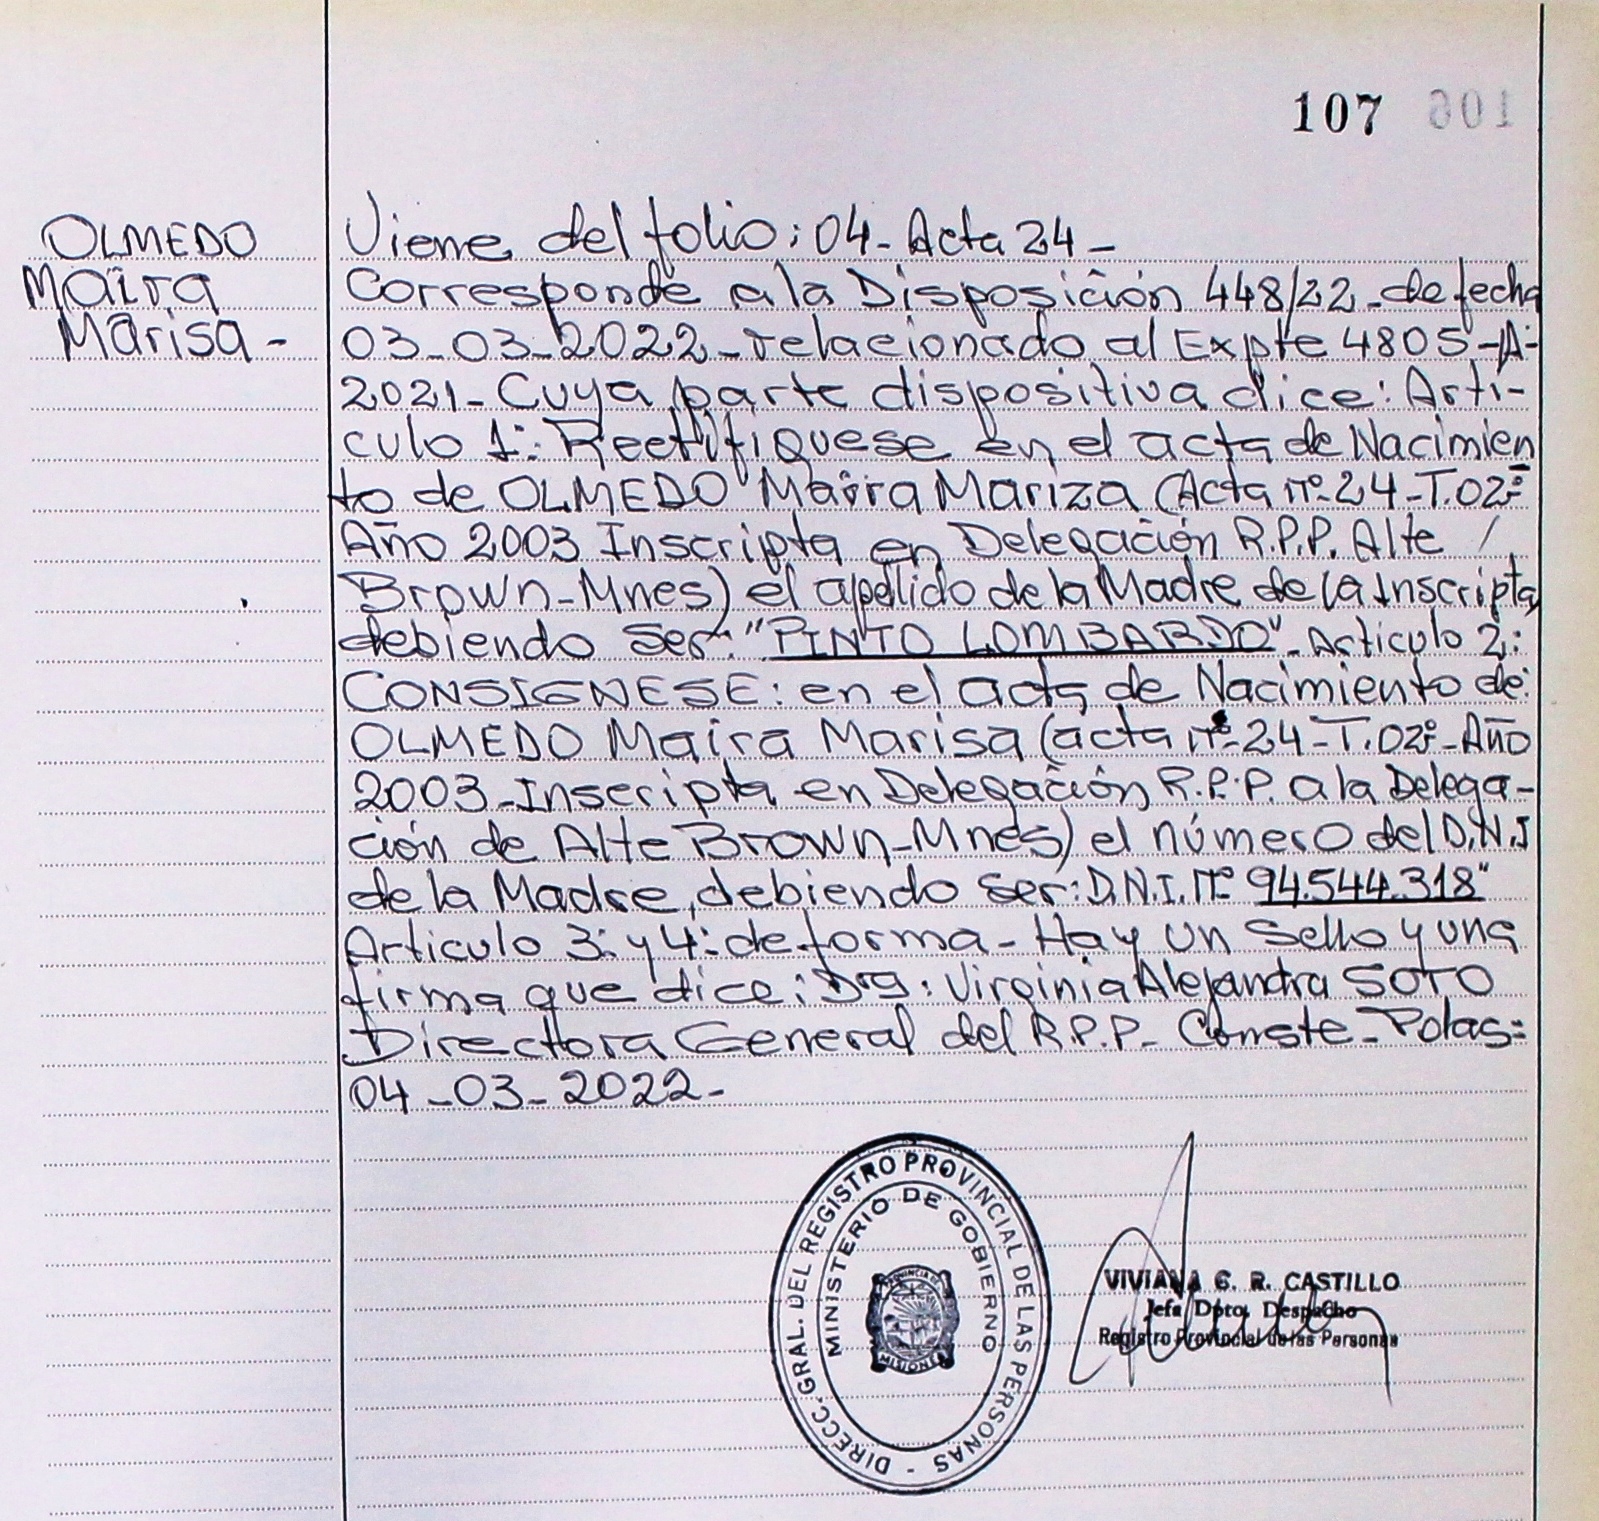 107 106
OLMEDO
Maira
Marisa-
Viene del folio: 04- Acta 24-
Corresponde a la Disposición 448/22-de fecha
03-03-2022-relacionado al Expte 4805-A-
2021- Cuya parte dispositiva dice: Arti-
culo 1°: Rectifiquese en el acta de Nacimien
to de OLMEDO Maira Mariza (Acta n°-24-T.02°-
Año 2003 Inscripta en Delegación R.P.P. Alte /
Brown-Mnes) el apellido de la Madre de la Inscripta,
debiendo ser: "PINTO LOMBARDO"- Articulo 2:
CONSIGNESE: en el acta de Nacimiento de:
OLMEDO Maira Marisa (acta n°-24-T.02°-Año
2003-Inscripta en Delegación R.P.P. a la Delega-
ción de Alte Brown-Mnes) el número del D.N.I
de la Madre, debiendo ser: D.N.I. N° 94.544.318"
Articulo 3: y 4: de forma- Hay un Sello y una
firma que dice: Dra: Virginia Alejandra SOTO
Directora General del R.P.P- Conste- Pdas:
04-03-2022-
DIRECC. GRAL. DEL REGISTRO PROVINCIAL DE LAS PERSONAS -
MINISTERIO DE GOBIERNO
PROVINCIA DE
MISIONES
VIVIANA G. R. CASTILLO
Jefa Dpto. Despacho
Registro Provincial de las Personas